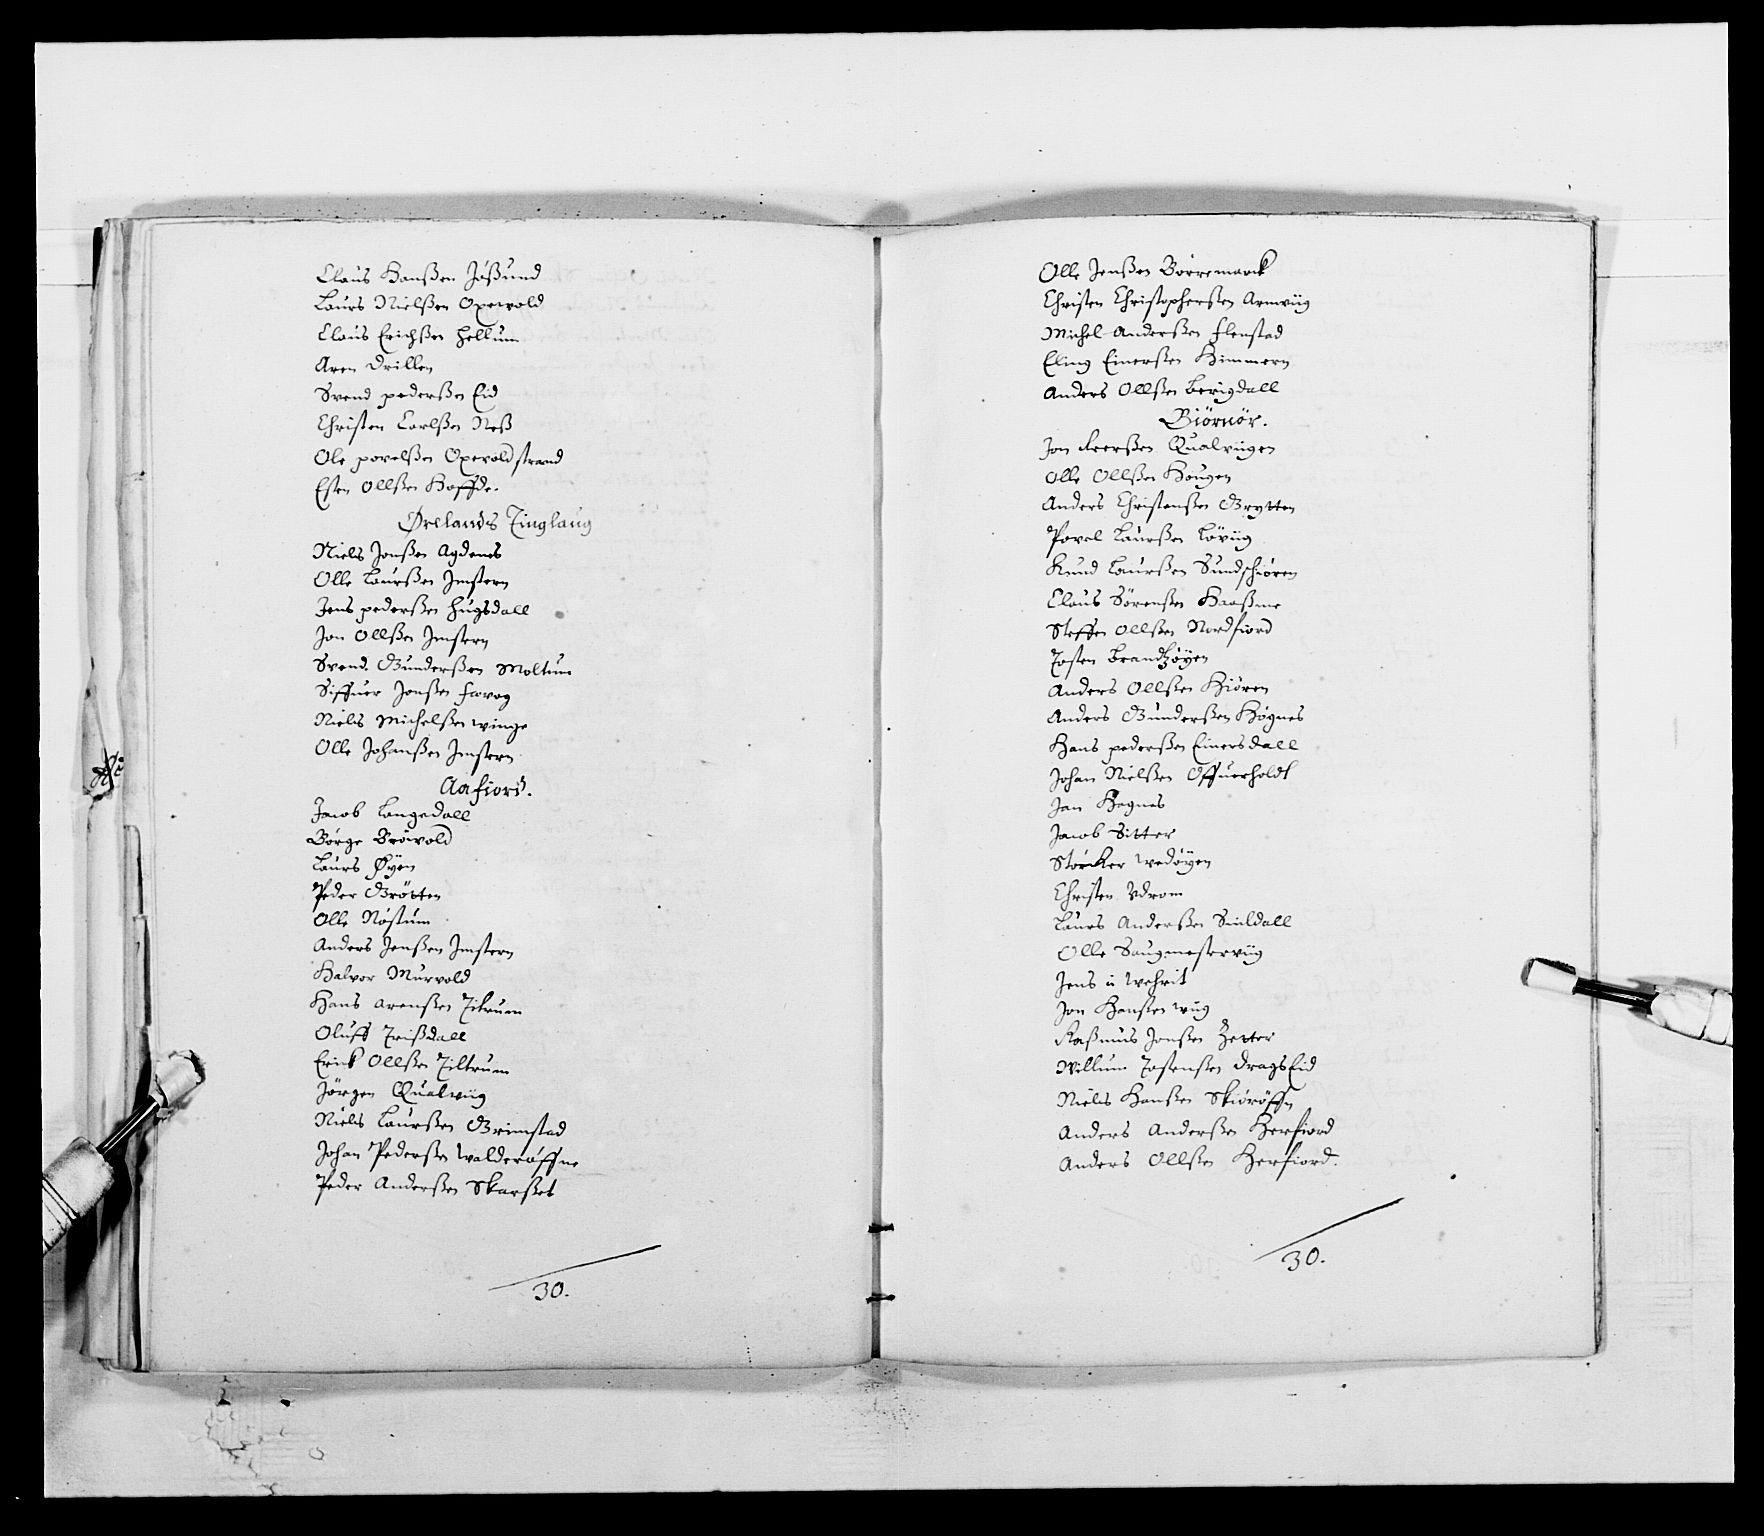 Claus Hanßen Jußund
Laurs Nielßen Opewold
Claus Erichßen Hellum
Aren Drillen
Svend pederßen Eid
Christen Carlßen Neß
Ole povelßen Opevoldstrand
Esten Ollßen Hoffde.
Ørelands Tinglaug
Niels Jonßen Agdenes
Olle Laurßen Jmstern
Jens pederßen Hugsdall
Jon Ollßen Jmstern
Svend Gunderßen Moltum
Siffuer Jonßen
Niels Michelßen Winge
Olle Johanßen Jmstern
Aafiord.
Jacob Langedall
Børge Brøwold
Laurs Øyen
Peder Grøtten
Olle Nøstum
Anders Jenßen Jmstern
Halvor Murvold
Hans Arenßen Tiltrum
Oluff Trißdall
Erick Ollßen Tiltrum
Jörgen Qualviig
Niels Laurßen Grimstad
Johan Pederßen Walderøffne
Peder Anderßen Skarßet
30.
Olle Jenßen Borremarck
Christen Christopherßen Arnviig
Michel Anderßen Flenstad
Eling Einerßen Himmern
Anders Ollßen Berigdall
Biörnör.
Jon Iverßen Qualviigen
Olle Ollßen Hougen
Anders Christenßen Grytten
Povel Laurßen Löviig
Knud Laurßen Sundschiören
Claus Sörenßen
Steffen Ollßen Nordfiord
Josten Brandtzöyen
Anders Ollßen Kiören
Anders Gunderßen Högnes
Hans pederßen Einersdall
Johan Nielßen Offuerholdt
Jan Hognes
Jacob Sitter
Störcker Wedöyen
Christen Vdrom
Laurs Anderßen Smldall
Olle Saugmesterviig
Jens i
Jon Hanßen Wiig
Raßmus Jonßen Zetter
Willum Jostenßen Dragseid
Niels Hanßen Skiöröffn
Anders Anderßen Herfiord
Anders Ollßen Herfiord.
30.